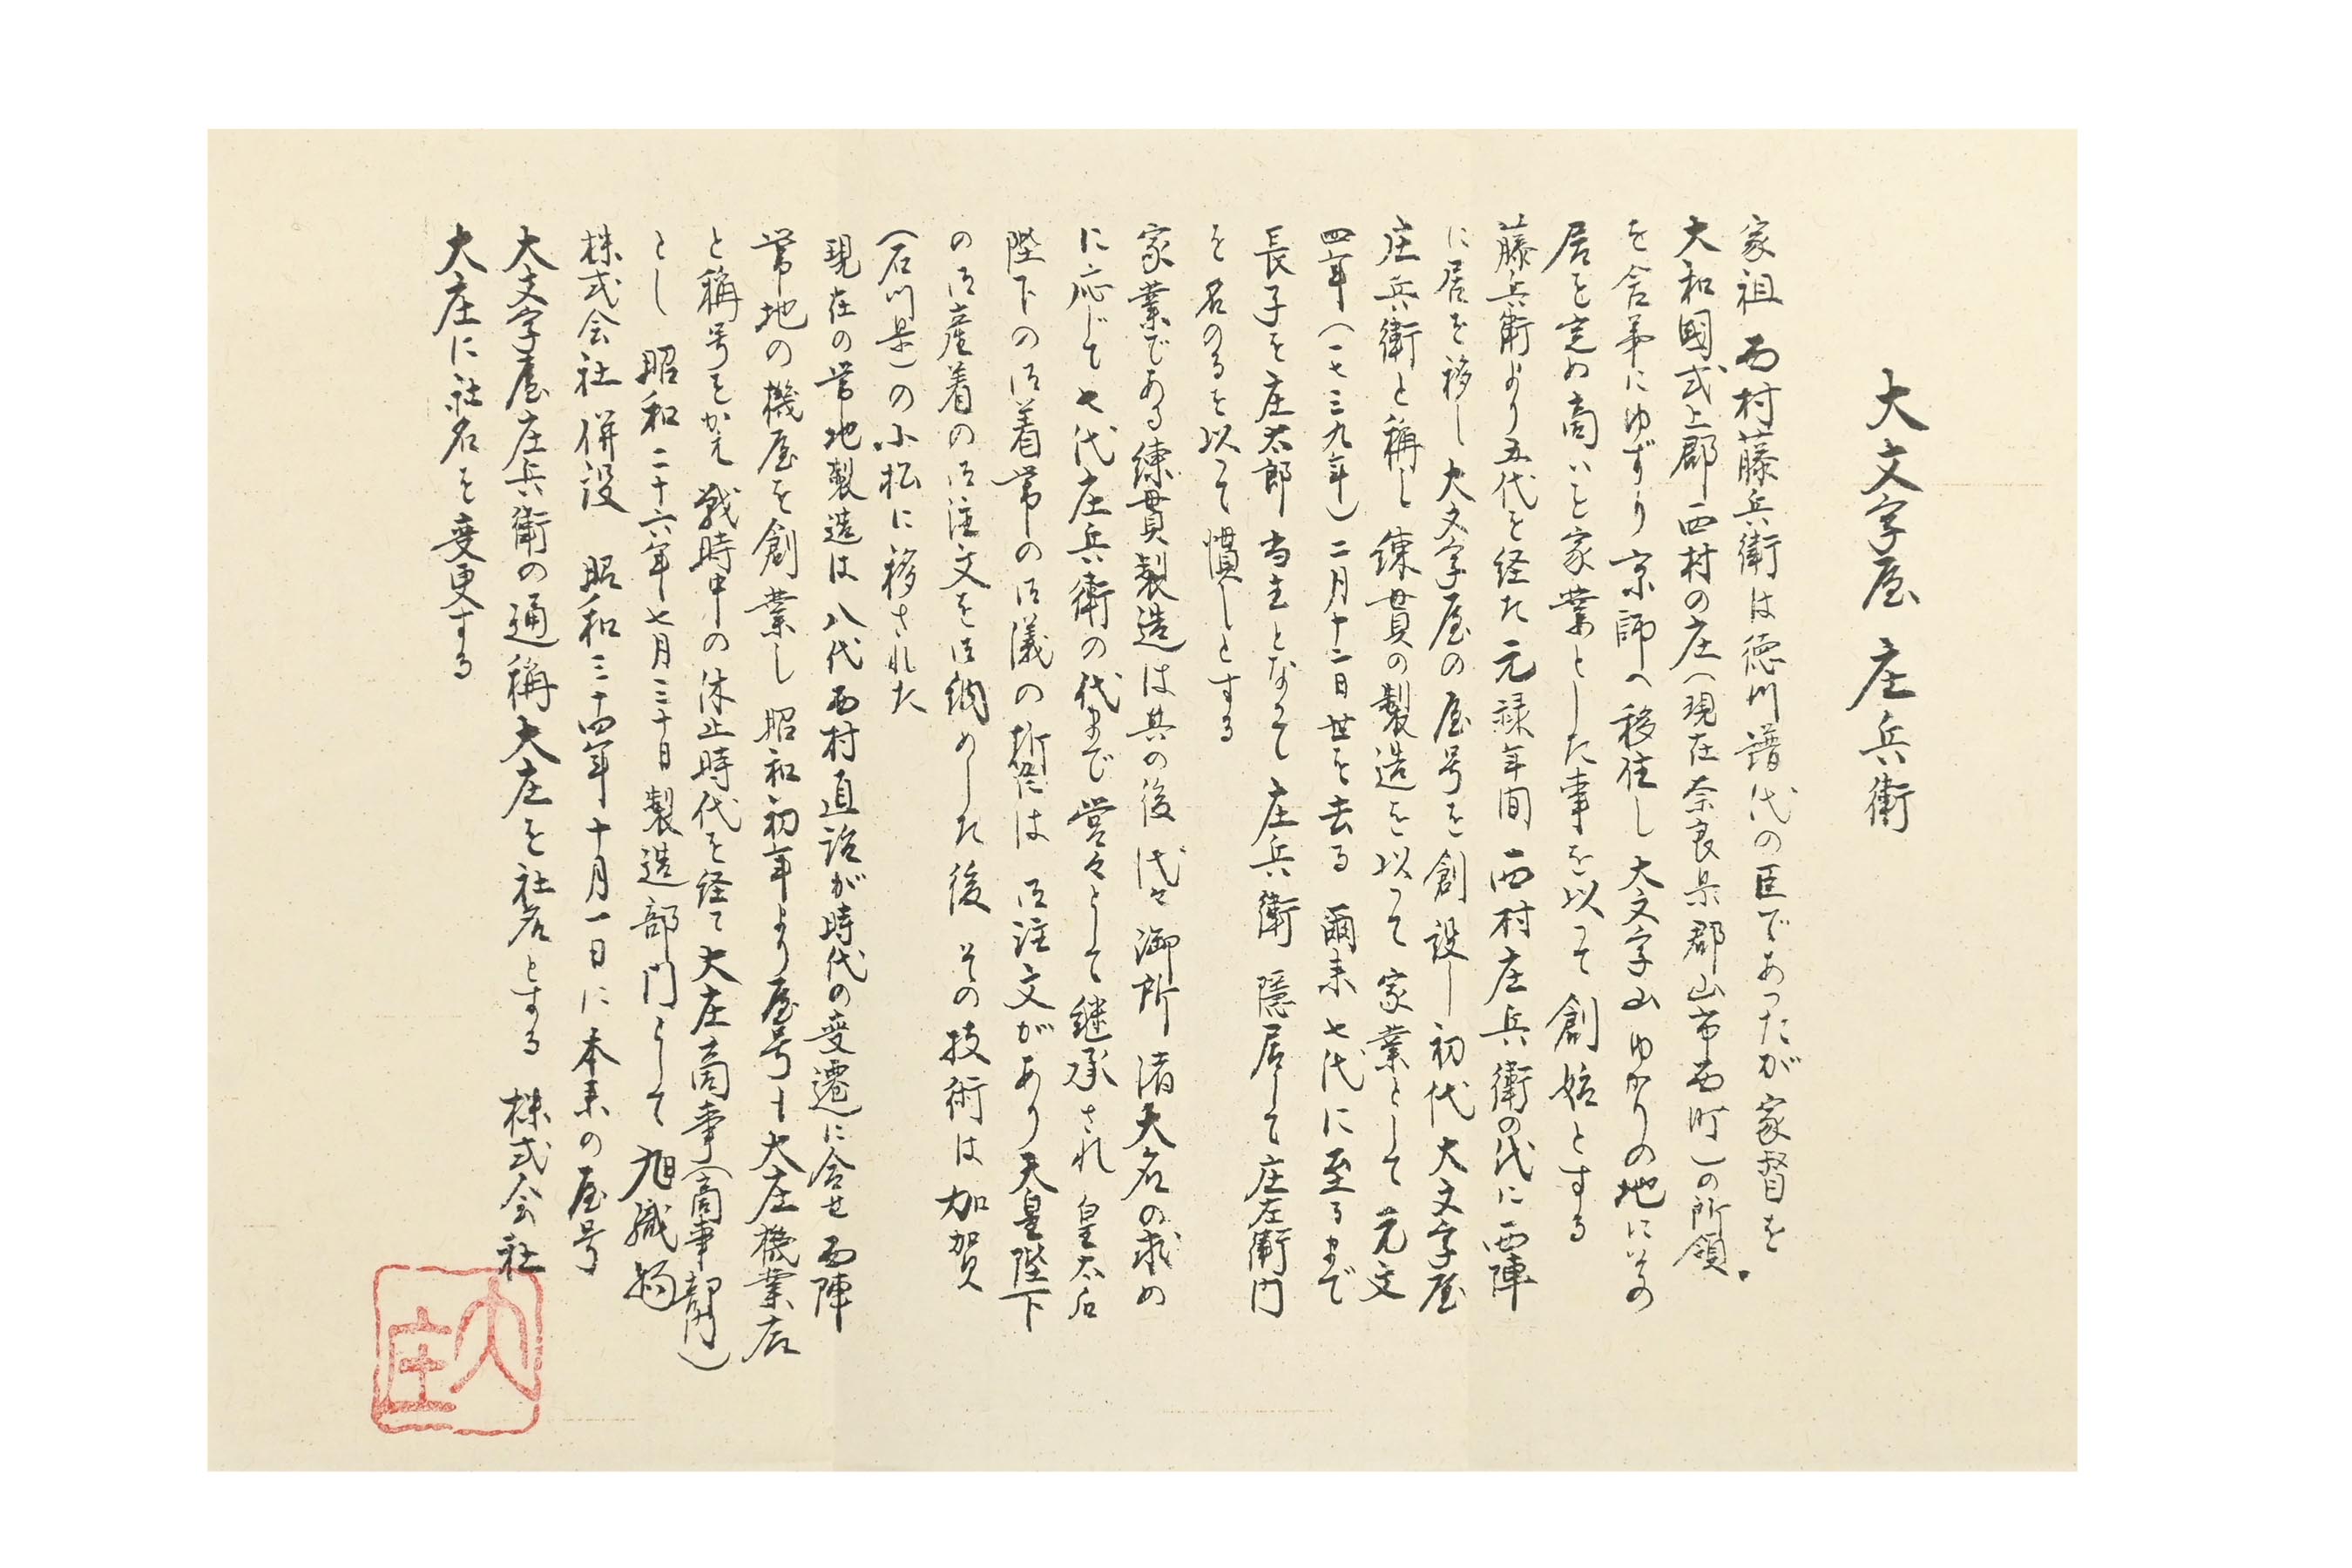 大文字屋 庄兵衛
家祖 西村藤兵衛は徳川譜代の臣であったが家督を
大和國式上郡西村の庄(現在奈良県郡山市西町)の所領
を舎弟にゆずり京師へ移住し大文字山ゆかりの地にその
居を定め商いを家業とした事を以って創始とする
藤兵衛より五代を経た元禄年間 西村庄兵衛の代に西陣
に居を移し大文字屋の屋号を創設し初代大文字屋
庄兵衛と稱し練貫の製造を以って家業として元文
四年(一七三九年)二月十二日世を去る 爾来七代に至るまで
長子を庄太郎 当主となって庄兵衛 隠居して庄左衛門
を名のるを以って慣しとする
家業である練貫製造は其の後代々御所 諸大名の求め
に応じて七代庄兵衛の代まで営々として継承され 皇太后
陛下の御着帯の御儀の折には御注文があり天皇陛下
の御産着の御注文を御納めした後 その技術は加賀
(石川県)の小松に移された
現在の帯地製造は八代西村直治が時代の変遷に合せ西陣
帯地の機屋を創業し昭和初年より屋号も大庄機業店
と稱号をかえ戦時中の休止時代を経て大庄商事(商事部門)
とし 昭和二十六年七月三十日製造部門として旭織物
株式会社併設 昭和三十四年十月一日に本来の屋号
大文字屋庄兵衛の通稱大庄を社名とする 株式会社
大庄に社名を変更する
大庄